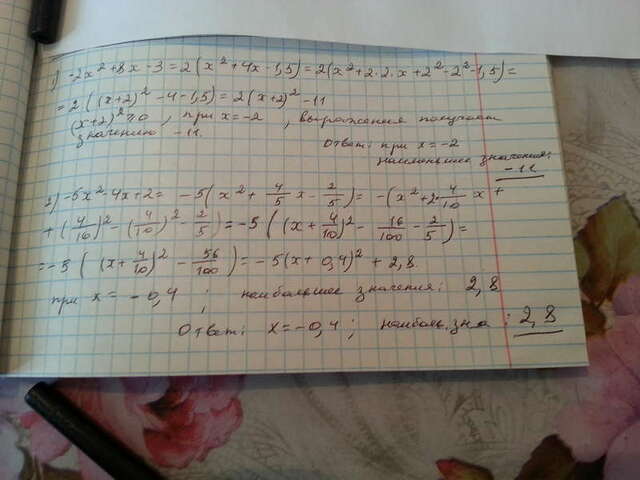 1) -2x² + 8x - 3 = 2(x² + 4x - 1,5) = 2(x² + 2·2·x + 2² - 2² - 1,5) =
= 2·((x+2)² - 4 - 1,5) = 2(x+2)² - 11
(x+2)² ≥ 0, при x = -2, выражения получает
значению -11.
Ответ: при x = -2
наименьшее значения:
-11
2) -5x² - 4x + 2 = -5(x² + 4/5 x - 2/5) = -(x² + 2·4/10 x +
+ (4/10)² - (4/10)² - 2/5) = -5((x + 4/10)² - 16/100 - 2/5) =
= -5((x + 4/10)² - 56/100) = -5(x + 0,4)² + 2,8.
при x = -0,4; наибольшее значения: 2,8
Ответ: x = -0,4; наибольш. зна: 2,8